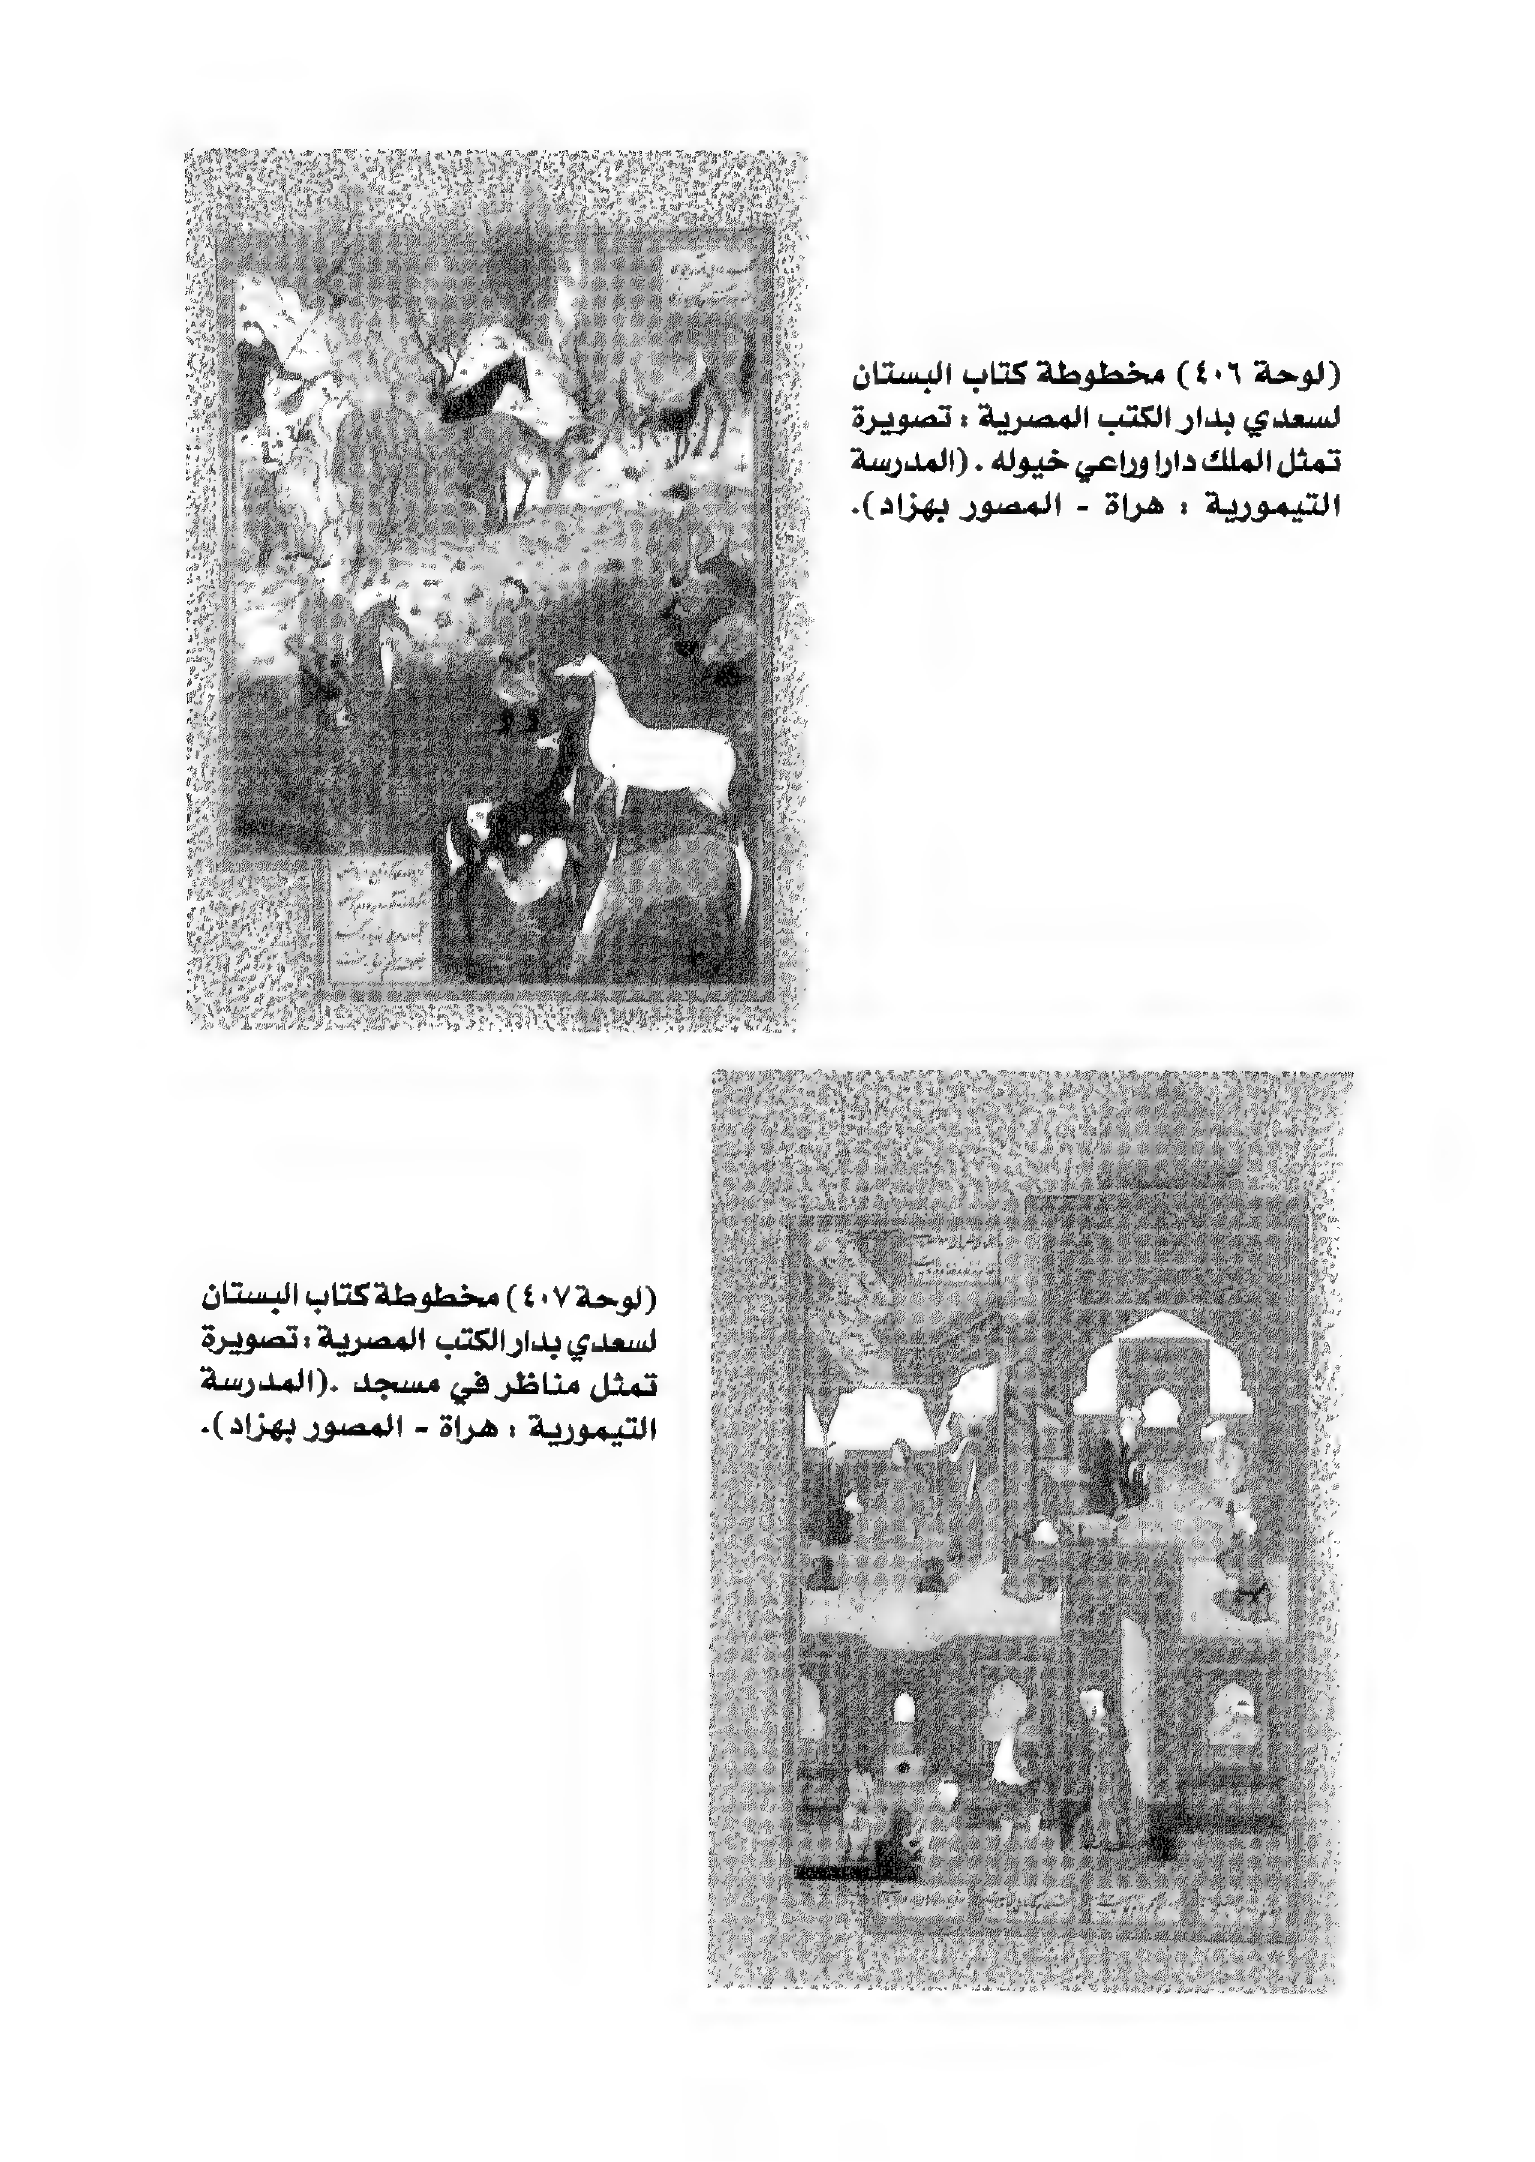 (لوحة ٤٠٦) مخطوطة كتاب البستان
لسعدي بدار الكتب المصرية : تصويرة
تمثل الملك دارا وراعي خيوله . (المدرسة
التيمورية : هراة - المصور بهزاد).
(لوحة ٤٠٧) مخطوطة كتاب البستان
لسعدي بدار الكتب المصرية : تصويرة
تمثل مناظر في مسجد . (المدرسة
التيمورية : هراة - المصور بهزاد).